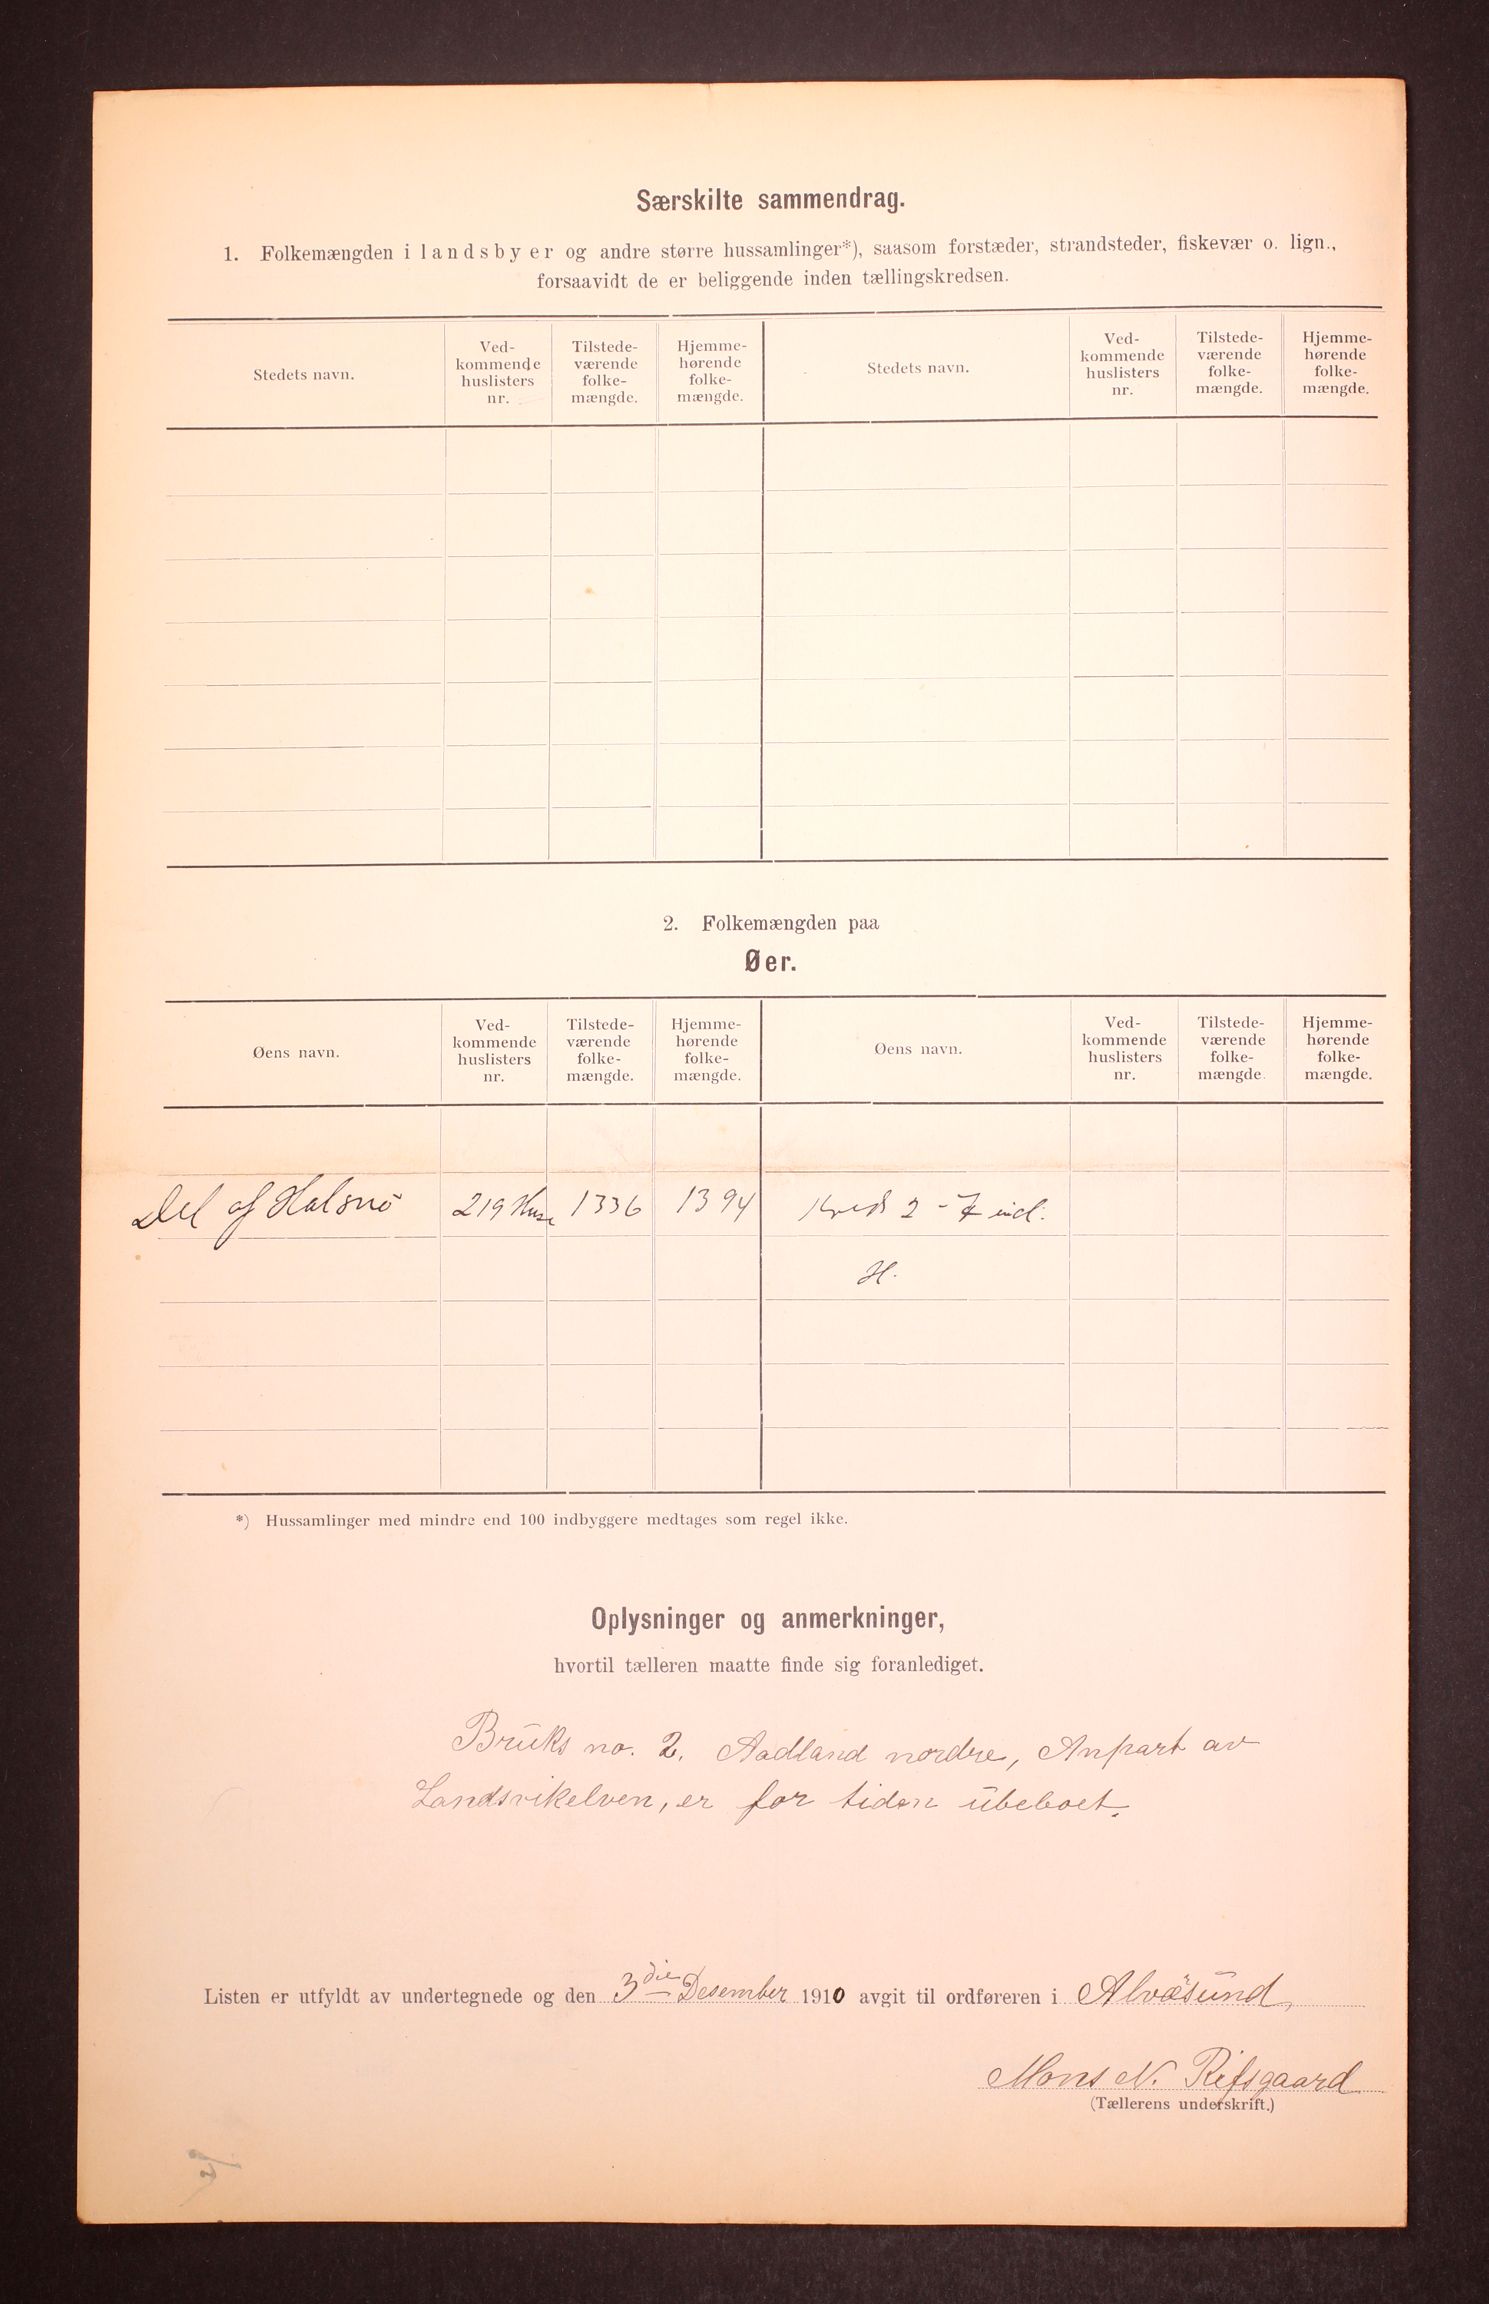 Særskilte sammendrag.
1. Folkemængden i landsbyer og andre større hussamlinger*), saasom forstæder, strandsteder, fiskevær o. lign.,
forsaavidt de er beliggende inden tællingskredsen.
Stedets navn.
Ved-
kommende
huslisters
nr.
Tilstede-
værende
folke-
mængde.
Hjemme-
hørende
folke-
mængde.
Stedets navn.
Ved-
kommende
huslisters
nr.
Tilstede-
værende
folke-
mængde.
Hjemme-
hørende
folke-
mængde.
2. Folkemængden paa
Øer.
Øens navn.
Ved-
kommende
huslisters
nr.
Tilstede-
værende
folke-
mængde.
Hjemme-
hørende
folke-
mængde.
Øens navn.
Ved-
kommende
huslisters
nr.
Tilstede-
værende
folke-
mængde.
Hjemme-
hørende
folke-
mængde.
Del af Halsnö 219 Huse 1336 1394 Kreds 2 - 7 incl.
H.
*) Hussamlinger med mindre end 100 indbyggere medtages som regel ikke.
Oplysninger og anmerkninger,
hvortil tælleren maatte finde sig foranlediget.
Bruks no. 2. Aadland nordre, Anpart av
Landsvikelven, er for tiden ubeboet.
Listen er utfyldt av undertegnede og den 3die Desember 1910 avgit til ordføreren i Alvøsund,
Mons N. Rifsgaard
(Tællerens underskrift.)